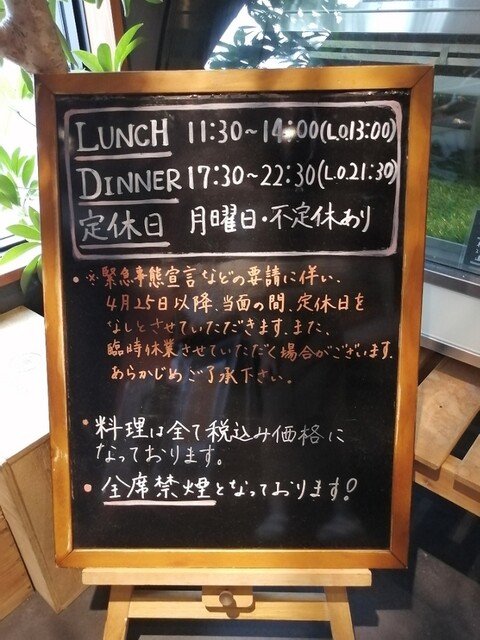 LUNCH 11:30~14:00(L.O.13:00)
DINNER 17:30~22:30(L.O.21:30)
定休日 月曜日・不定休あり
・※緊急事態宣言などの要請に伴い、
4月25日以降、当面の間、定休日を
なしとさせていただきます。また、
臨時休業させていただく場合がございます。
あらかじめご了承下さい。
・料理は全て税込み価格に
なっております。
・全席禁煙となっております!